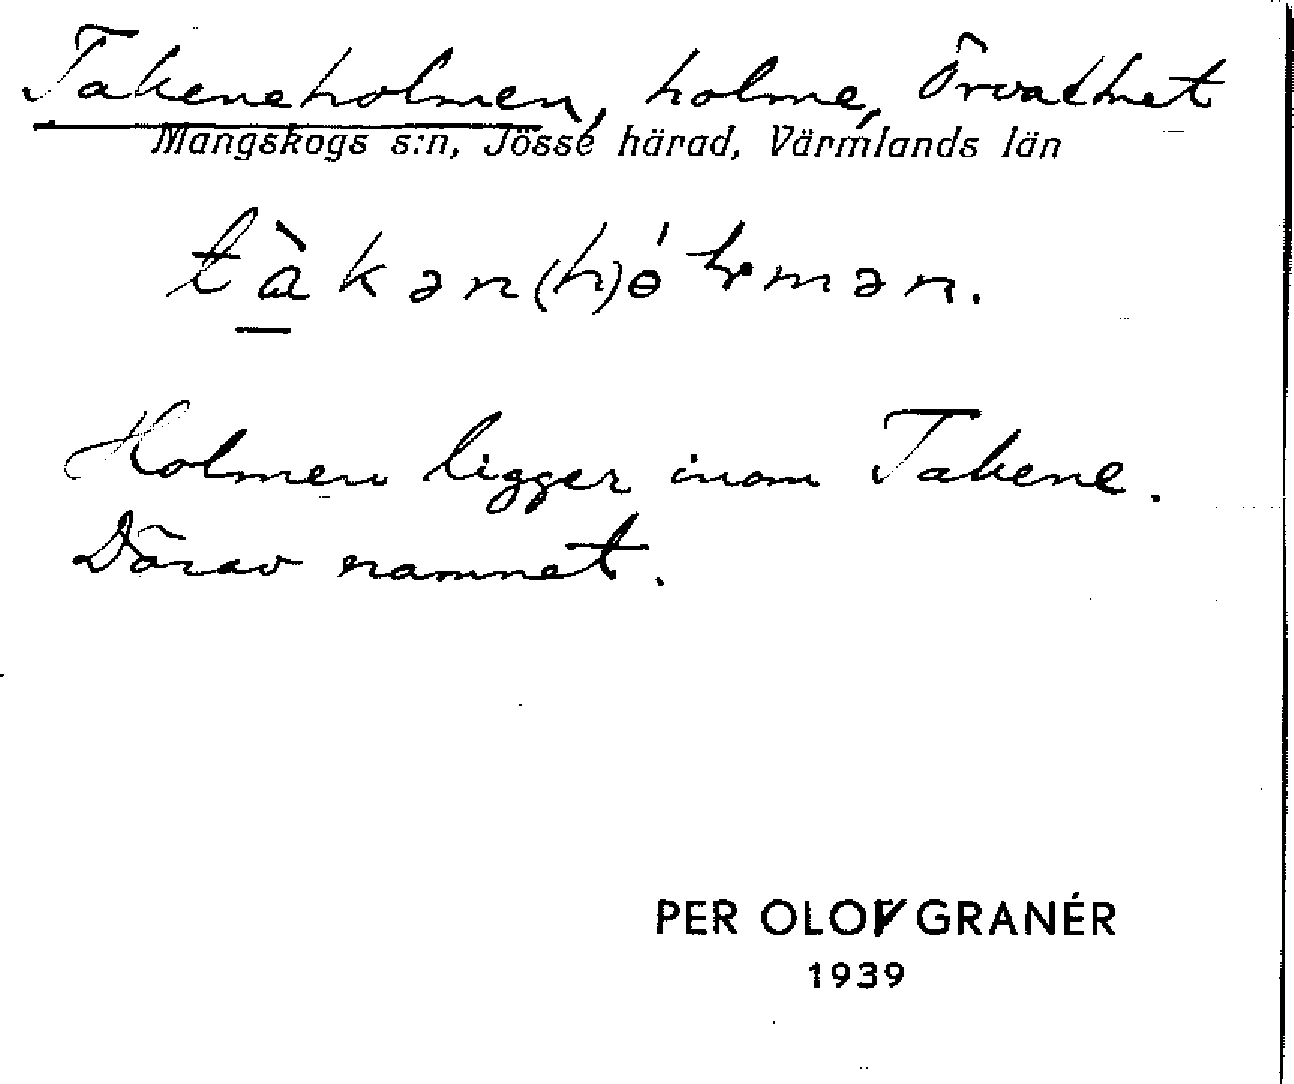 Takeneholmen, holme, Örvattnet
Mangskogs s:n, Jösse härad, Värmlands län
Holmen ligger inom Takene.
Därav namnet.
PER OLOV GRANÉR
1939